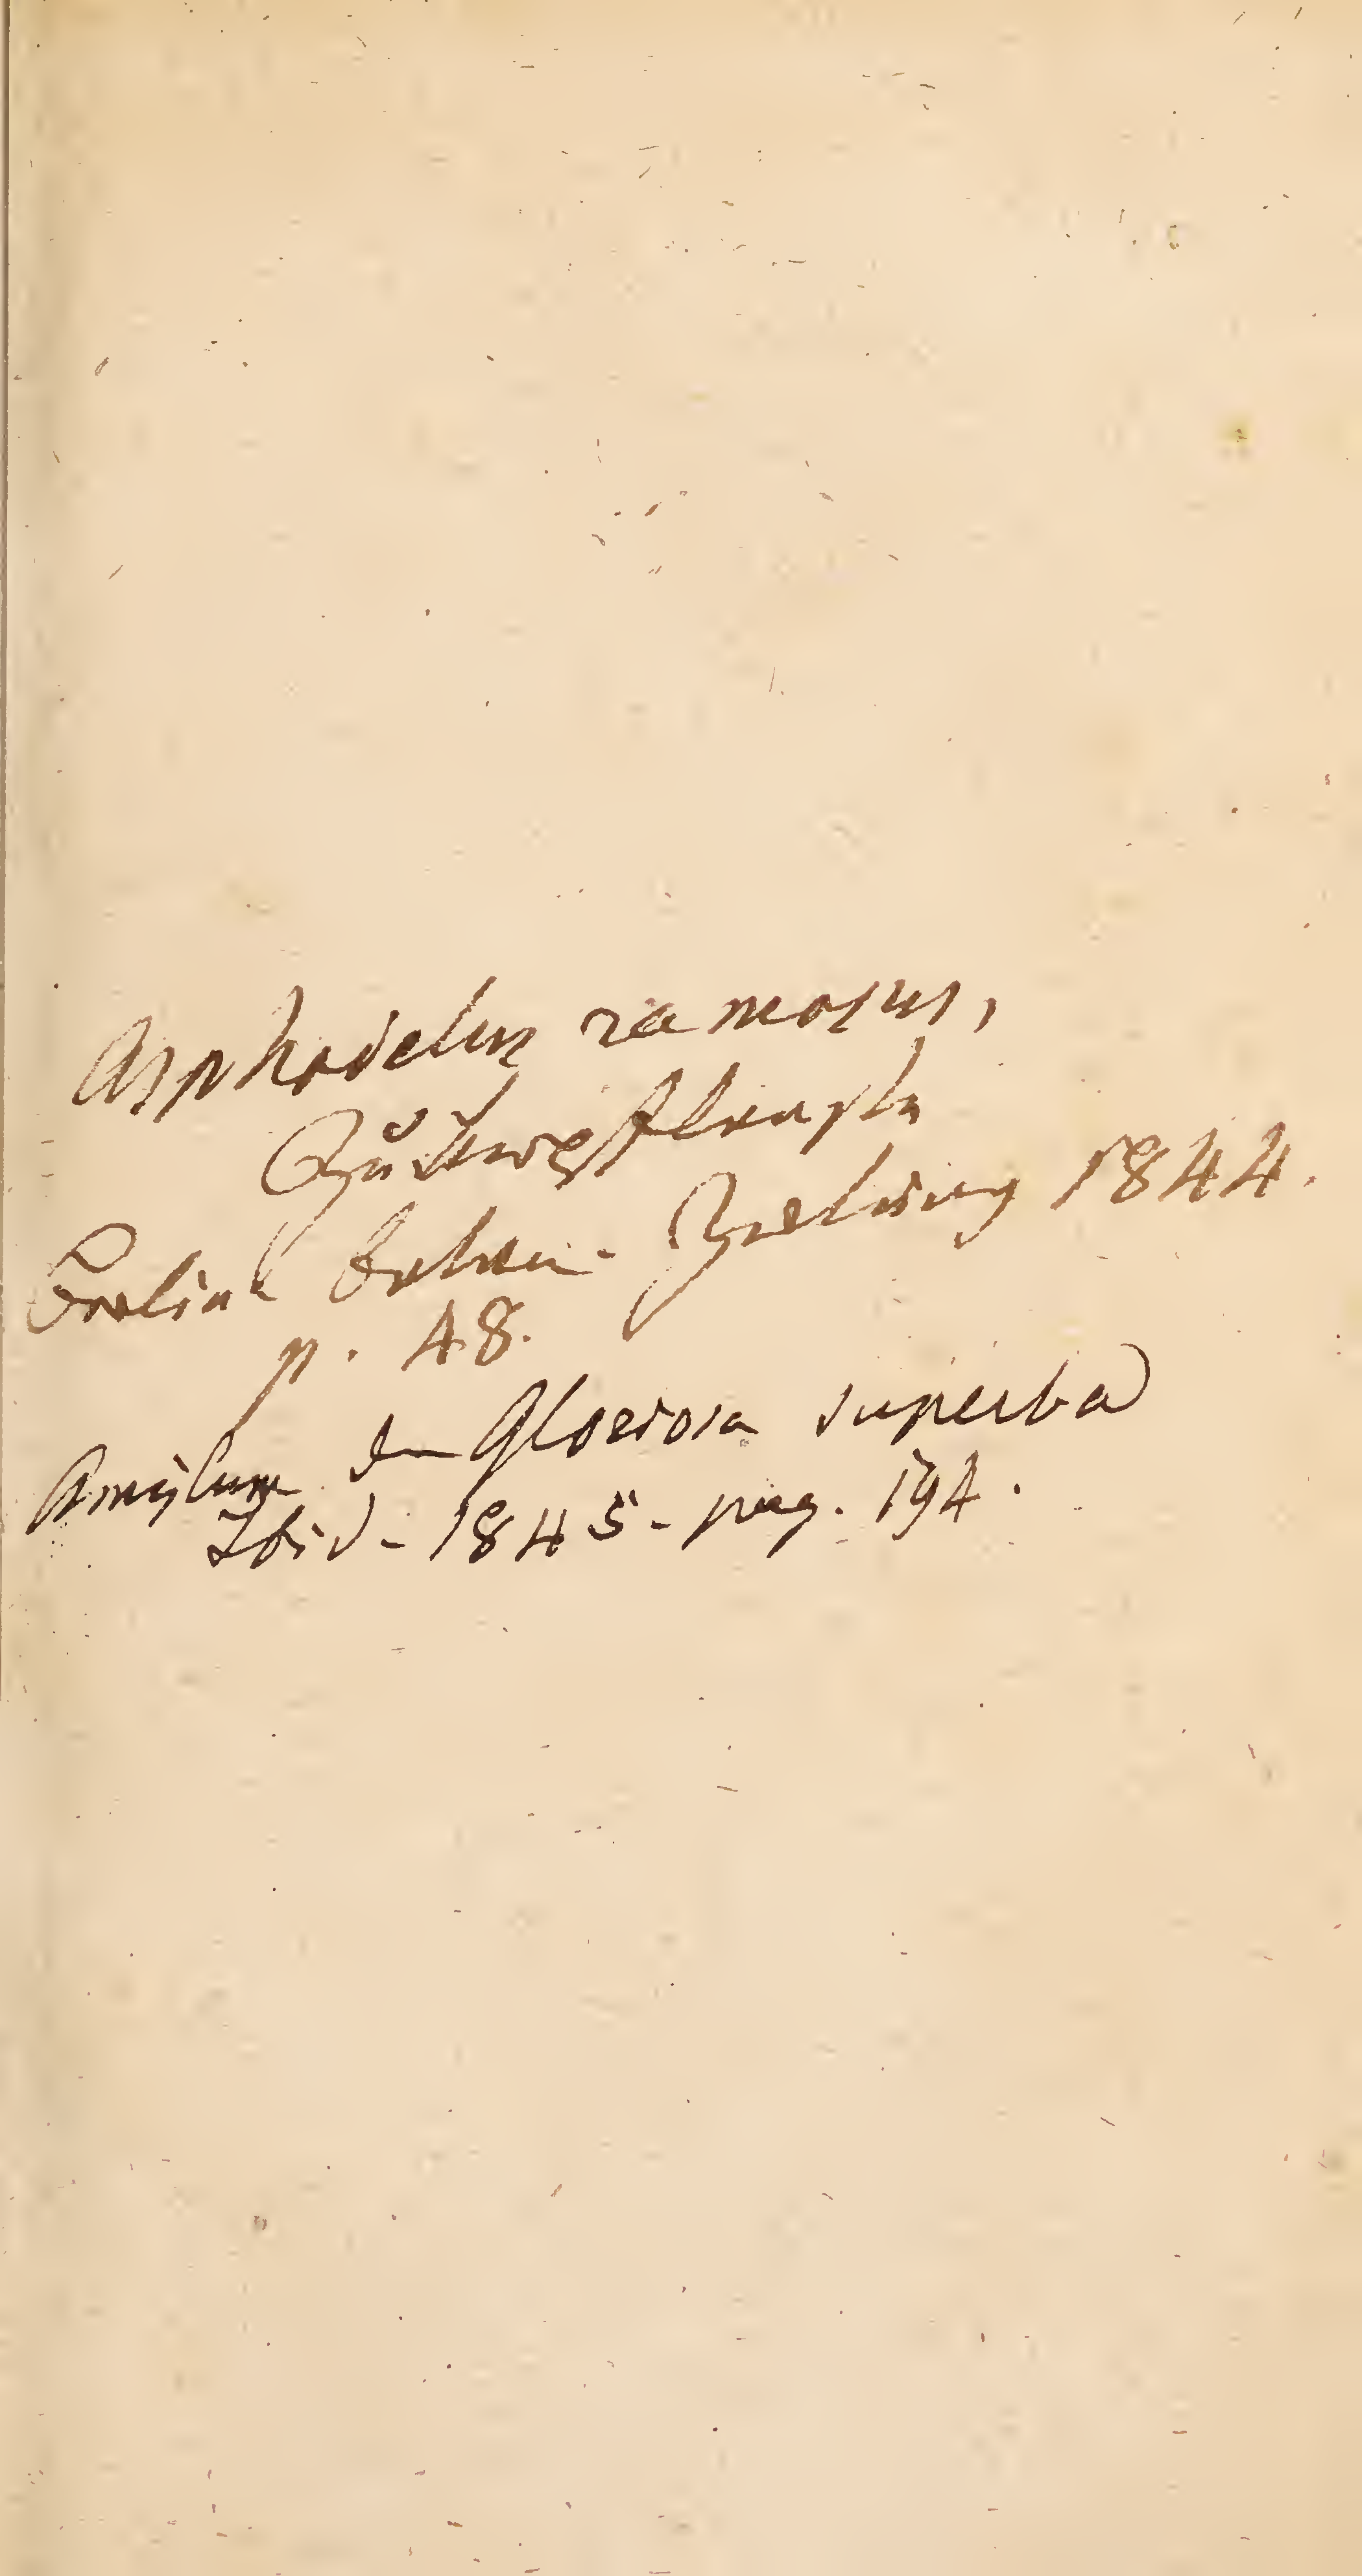 Asphodelus ramosus,
Zuckerpflanze
Berlin botan. Zeitung 1844.
p. 48.
Amylum in Gloriosa superba
Ibid - 1845 - pag. 194.